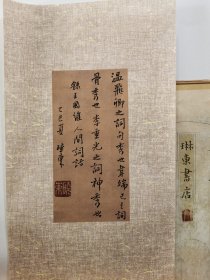 温飛卿之詞句秀也韋端己之詞
骨秀也李重光之詞神秀也
錄王國維人間詞話
乙巳夏
琳東書店